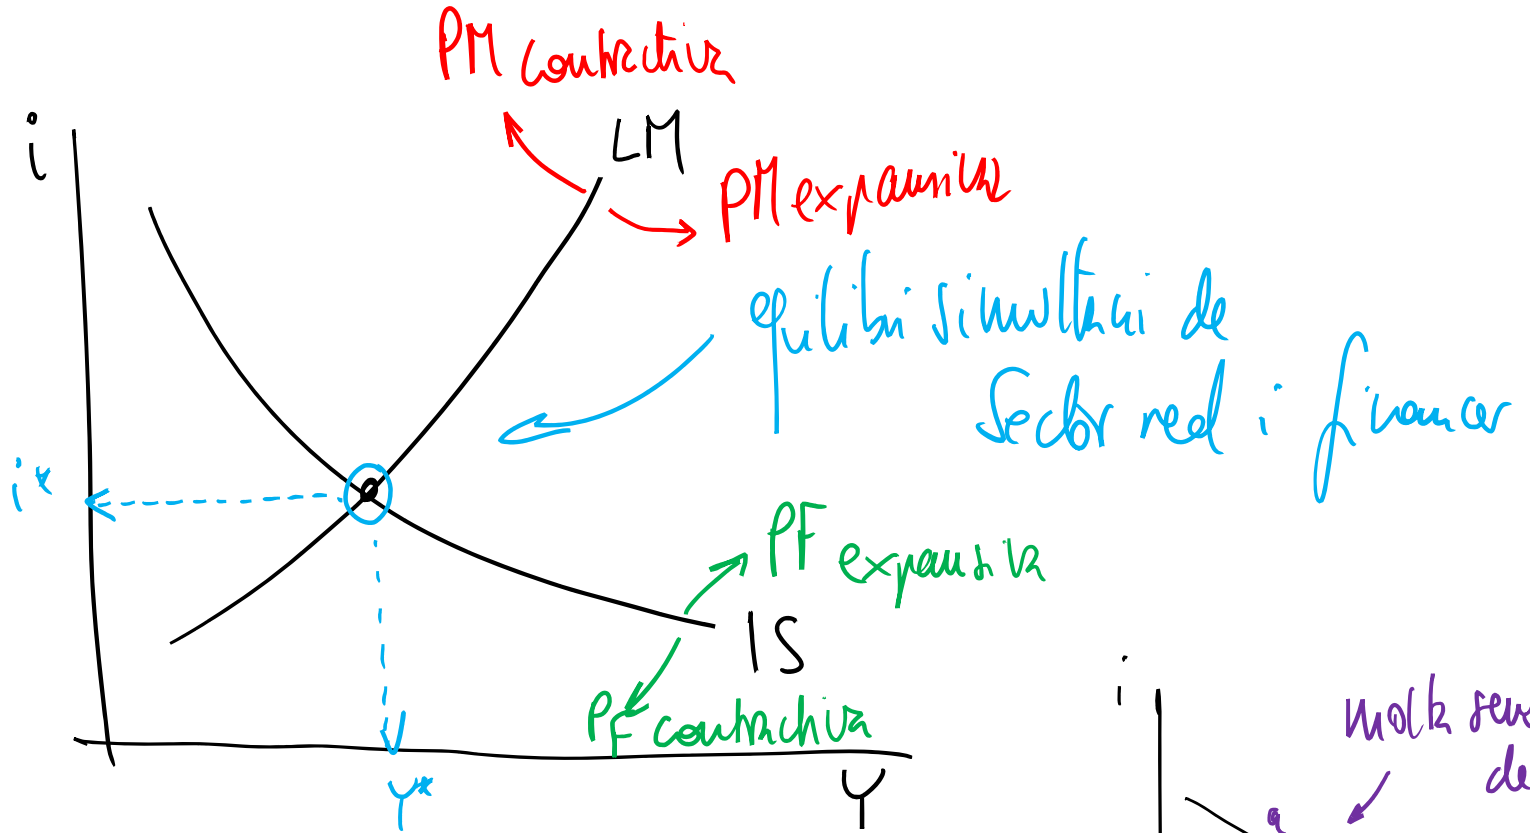 PM contractiva
i
LM
PM expansiva
equilibri simultani de
Sector real i financer
i*
PF expansiva
IS
PF contractiva
Y*
Y
i
molta
de
a